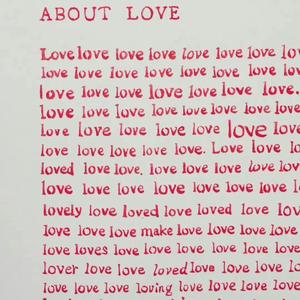 ABOUT LOVE
Love love love love love love love
love love love love love love love
love love love love love love love.
love love love love love love love love
love love love love love love love
love love love love love. Love love love
loved love love. love love love love love
love love love love love love love
lovely love loved love loved love love
love love love make love love love love
love loves love love love love love love
lover love love love loved love love love love
love love love loving love love love love